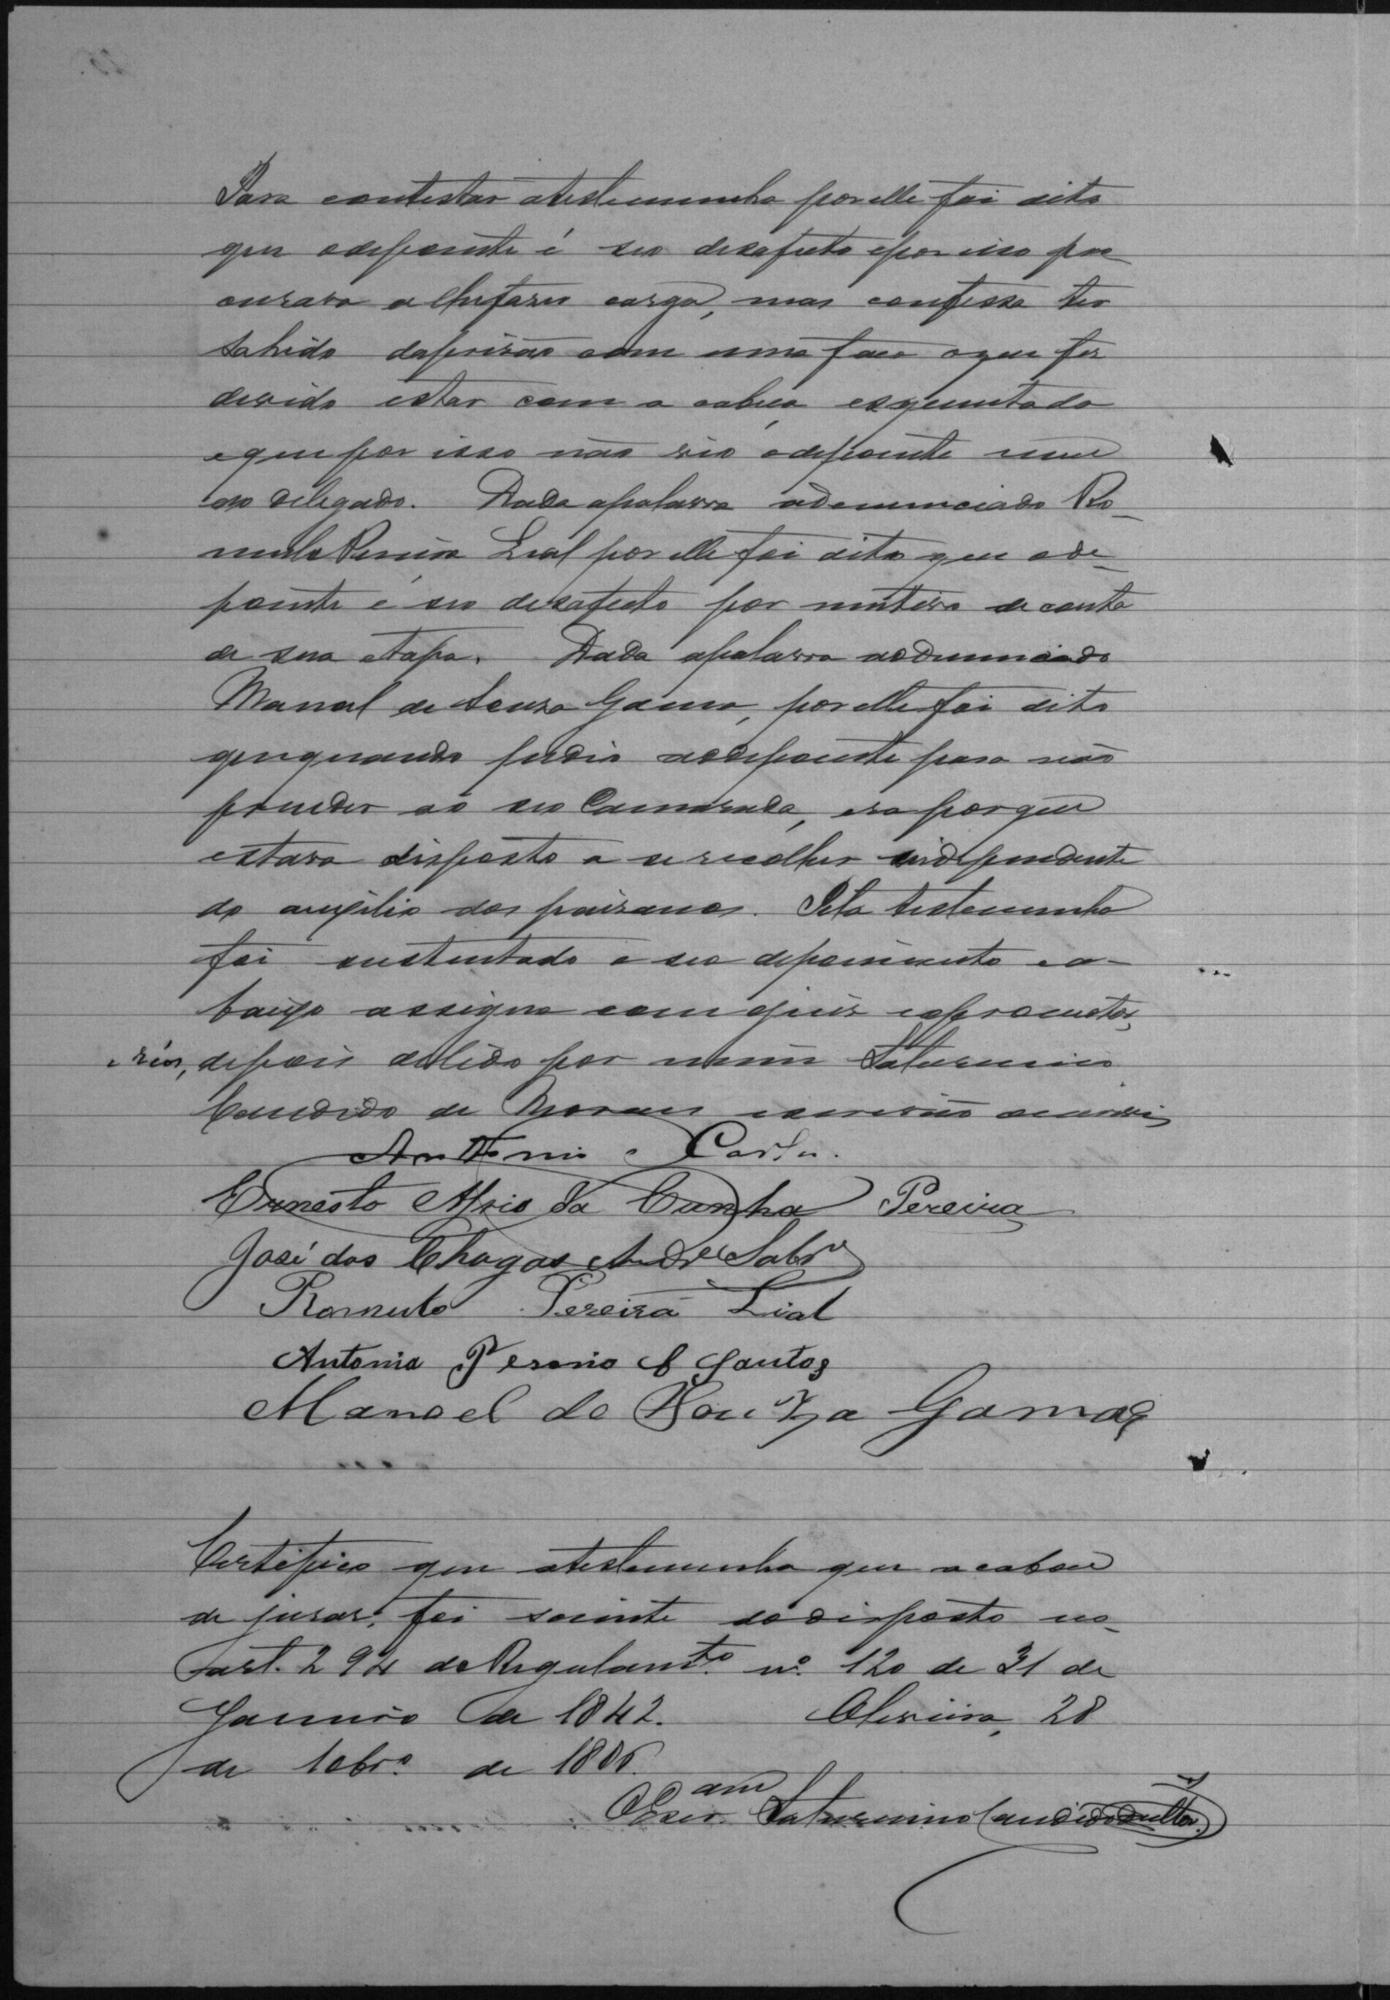 Para contestar atestemunha por elle foi dito
que odepoente é seo desafecto epor isso pro
curava a lhefazer carga, mas confessa ter
sahido daprisão com uma faca oque fez
devido estar com a cabeça esquentada
eque por isso não vio odepoente nem
ao delegado. Dada apalavra adenunciado Ro-
mulo Pereira Leal por elle foi dito que ode-
poente é seo desafecto por motivo de conta
de sua etapa. Dada apalavra aodenunciado
Manoel de Souza Gama, por elle foi dito
quequando pedio aodepoente para não
prender ao seo Camarada, era porque
estava disposto a se recolher independente
do auxilio dos paisanos. Pela testemunha
foi sustentado o seo depoimento e a-
baixo assigna com ojuiz eopromotor,
e réos, depois delido por mim Saturnino
Candido de Moraes escrivão escrevi
Antonio Carlos.
Ernesto da Cunha Pereira
José das Chagas And.e Sobr.o
Romulo Pereira Lial
Antonio dos Santos
Manoel de Souza Gama
Certifico que atestemunha que acabou
de jurar, foi sciente dodisposto no
art. 294 do Regulam.to nº 120 de 31 de
Janeiro de 1842. Oliveira, 28
de 1886.
OEscr.am Saturnino Candido